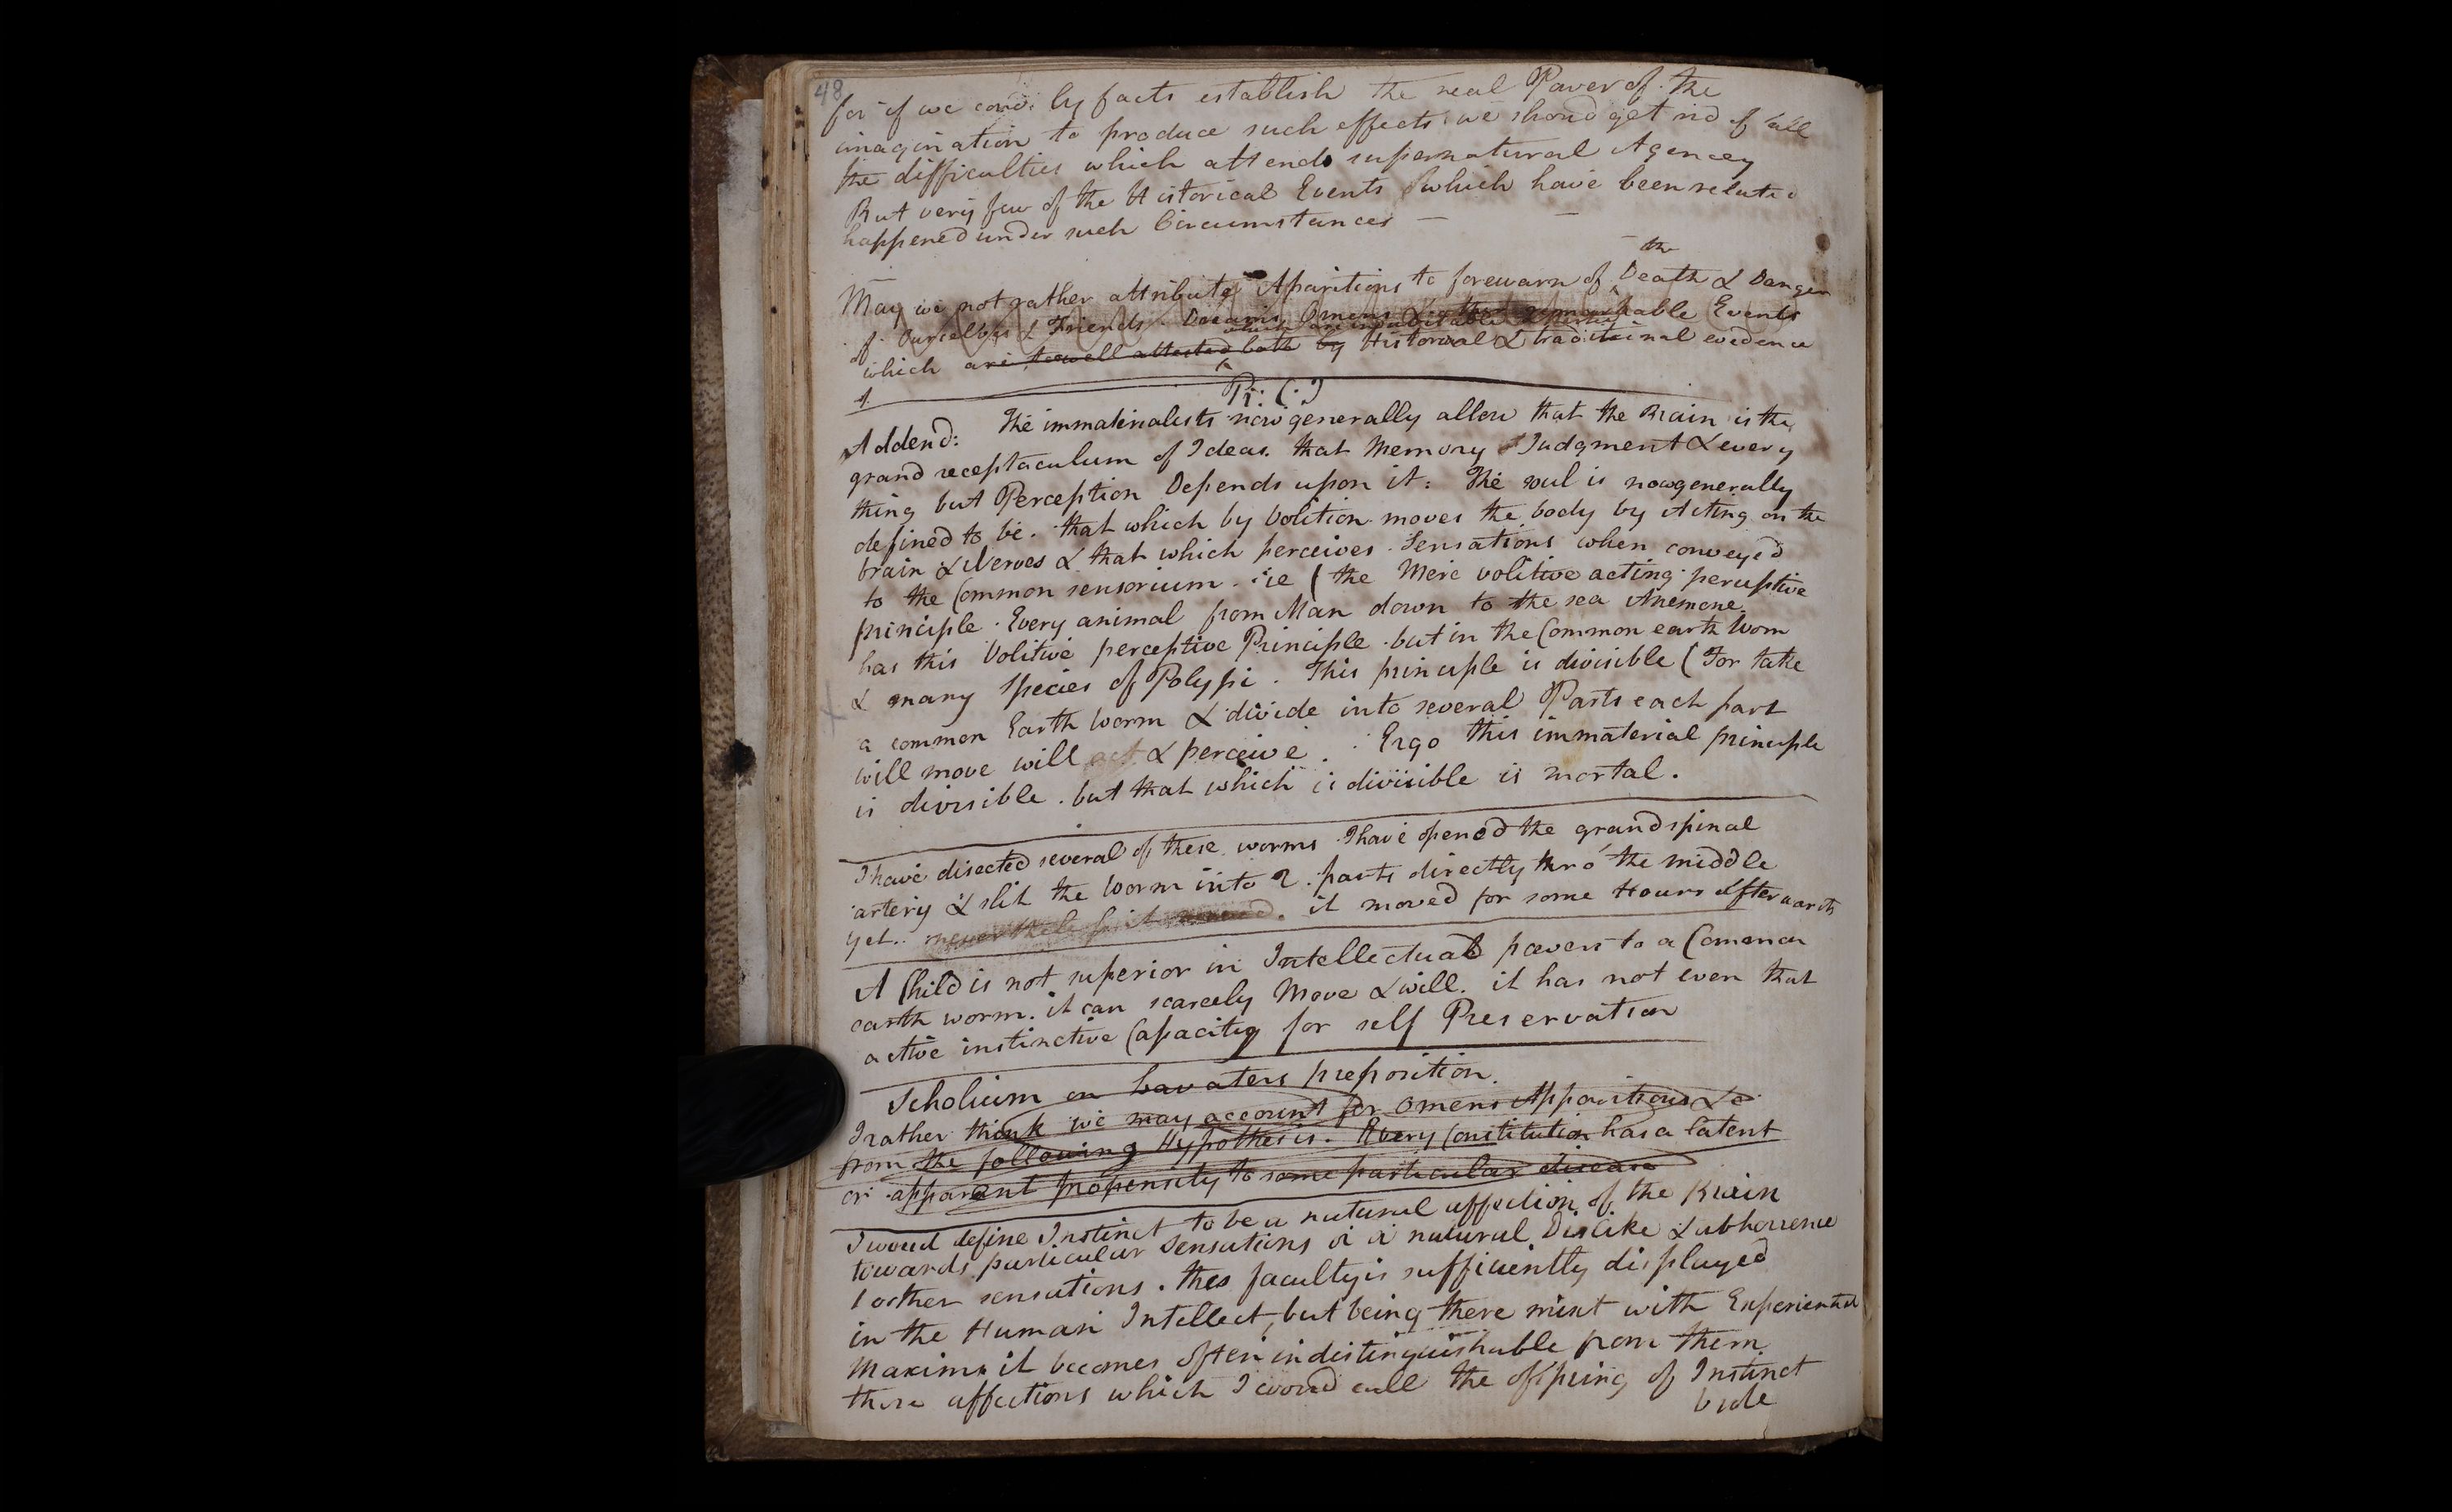 48
for if we coud. by facts establish the real Power of the
imagination to produce such effects we shoud get rid of all
the difficulties which attends supernatural Agency
But very few of the Historical Events which have been related
happened under such Circumstances —
the
May we not rather attribute Aparitions to forewarn of Death & Danger
of Ourselves & Friends. Dreams, Omens & other remarkable Events
which are indubitable
which are so well attested both by Historical & traditional evidence
Addend: The immaterialists now generally allow that the Brain is the
grand receptaculum of Ideas. that Memory Judgment & every
thing but Perception Depends upon it: The soul is now generally
defined to be. that which by Volition moves the body by Acting on the
brain & Nerves & that which perceives Sensations when conveyed
to the Common sensorium. ie (the Mere volitive acting perceptive
principle. Every animal from Man down to the sea Anemone
has this Volitive perceptive Principle. but in the Common earth Worm
& many Species of Polypi. This principle is divisible (For take
a common Earth Worm & divide into several Parts each part
will move will act & perceive. Ergo this immaterial principle
is divisible. but that which is divisible is mortal.
I have disected several of these worms I have opened the grand spinal
artery & slit the Worm into 2. parts directly thro' the middle
yet.. nevertheless it moved. it moved for some Hours afterwards
A Child is not superior in Intellectual powers to a Common
earth worm. it can scarcely Move & will. it has not even that
active instinctive Capacity for self Preservation
Scholium on Lavaters preposition.
I rather think we may account for Omens Apparitions &c
from the following Hypothesis. Every Constitution has a latent
or apparent propensity to some particular disease
I woud define Instinct to be a natural affection of the Brain
towards particular Sensations or a natural Dislike & abhorrence
to other sensations. this faculty is sufficiently displayed
in the Human Intellect, but being there mixt with Experiential
Maxims it becomes often indistinguishable from them
those affections which I woud call the offspring of Instinct
vide